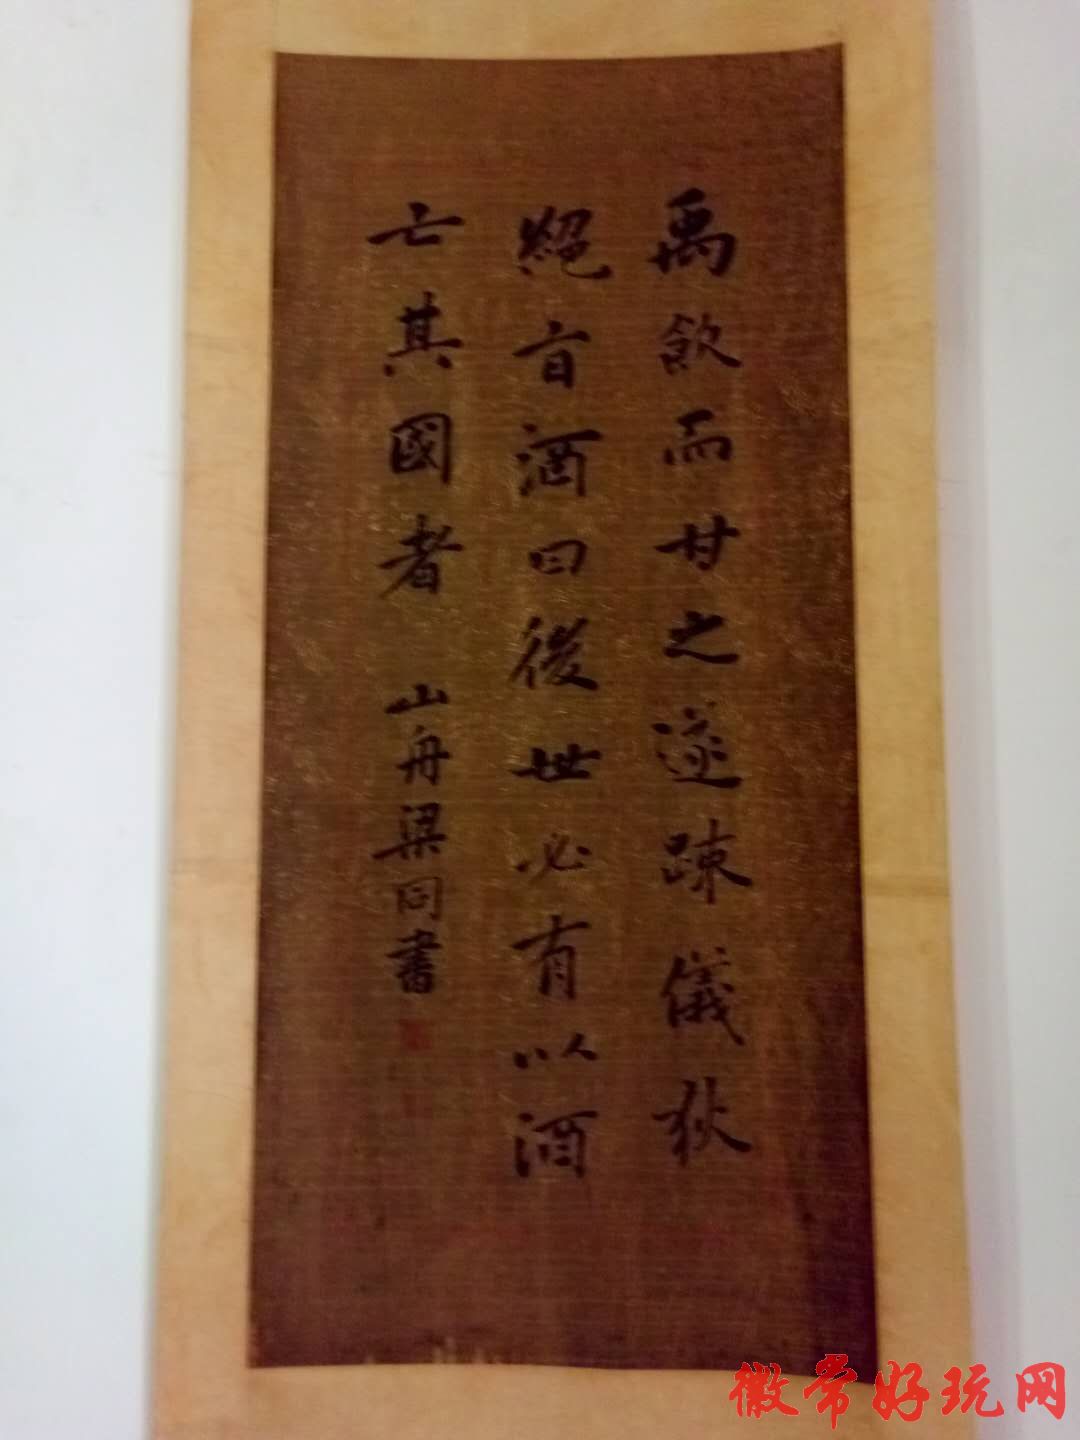 禹飲而甘之遂踈儀狄
絕旨酒曰後世必有以酒
亡其國者 山舟梁同書
徽常好玩网